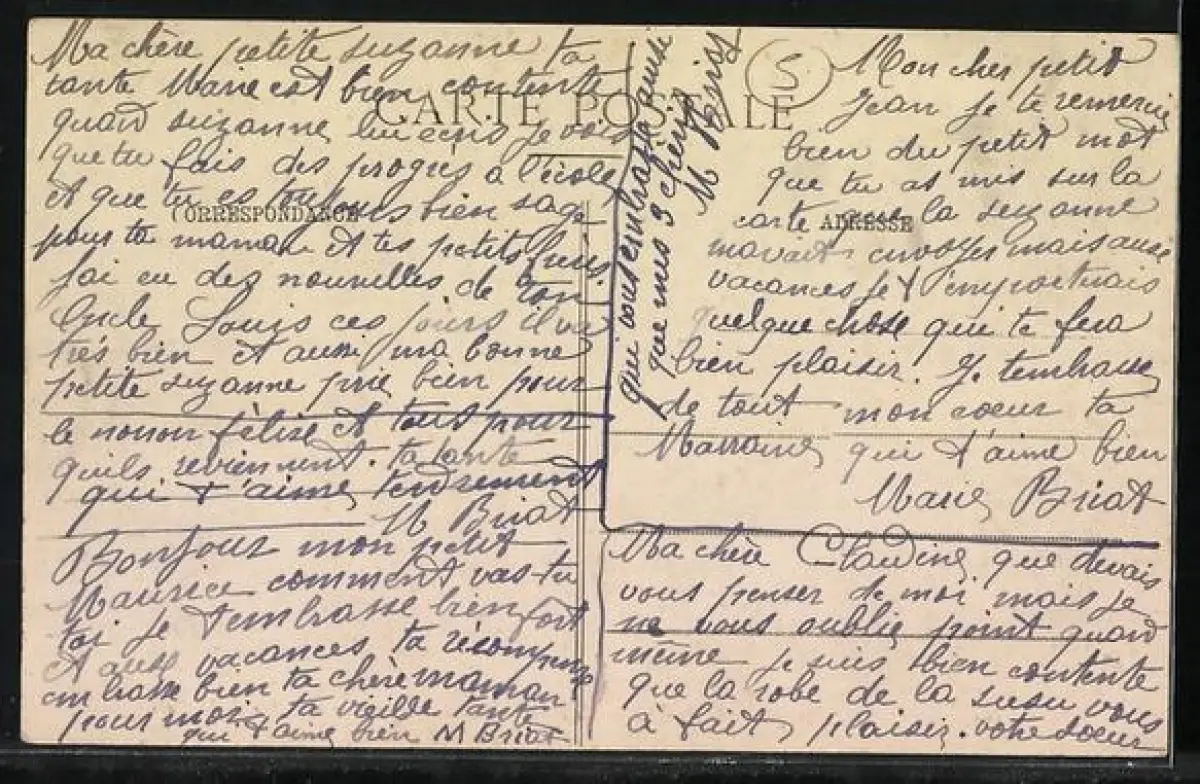 CARTE POSTALE
CORRESPONDANCE
ADRESSE
5
Ma chère petite suzanne ta
tante Marie est bien contente
quand suzanne lui ecris je vois
que tu fais des progres à l'école
et que tu es toujours bien sage
pour ta maman et tes petits
jai eu des nouvelles de ton
Oncle Louis ces jours il va
très bien et aussi ma bonne
petite suzanne prie bien pour
le nonon félise et tous pour
quils reviennent. ta tante
qui t'aime tendrement
M Briat
Bonjour mon petit
Maurice comment vas-tu
toi je t'embrasse bien fort
et aux vacances ta récompense
embrasse bien ta chère maman
pour moi ta vieille tante
qui t'aime bien M Briat
Mon cher petit
Jean je te remercie
bien du petit mot
que tu as mis sur la
carte que la suzanne
mavait envoyer mais aux
vacances je t'emporterais
quelque chose qui te fera
bien plaisir. Je t'embrasse
de tout mon coeur ta
Marraine qui t'aime bien
Marie Briat
Ma chère Claudine que devais
vous penser de moi mais je
ne vous oublie point quand
même je suis bien contente
que la robe de la susu vous
à fait plaisir. votre soeur
qui vous embrasse ainsi
que mes 3 chéris
M